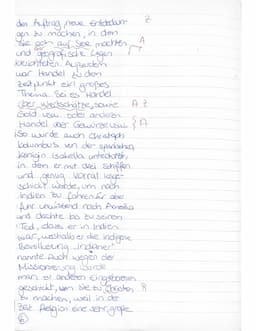 den Auftrag, neue Entdeckun- Z
gen zu machen, in den
Sie sich auf See machten A
und geografische Lagen
berichteten. Außerdem
war Handel zu dem
Zeitpunkt ein großes
Thema. Sei es Handel
über Wertschätze, sowie A Z
Gold usw. oder anderen
Handel über Gewürze usw. A
So wurde auch Christoph
Kolumbus von der spanischen
Königin Isabella unterstützt,
in dem er mit drei Schiffen
und genug Vorrat losge-
schickt wurde, um nach
Indien zu fahren. Er aber
fuhr unwissend nach Amerika
und dachte bis zu seinem
Tod, dass er in Indien
war, weshalb er die indigene
Bevölkerung "Indianer"
nannte. Auch wegen der
Missionierung wurde
man zu anderen Eingeborenen
geschickt, um Sie zu Christen R
zu machen, weil in der
Zeit Religion eine sehr große